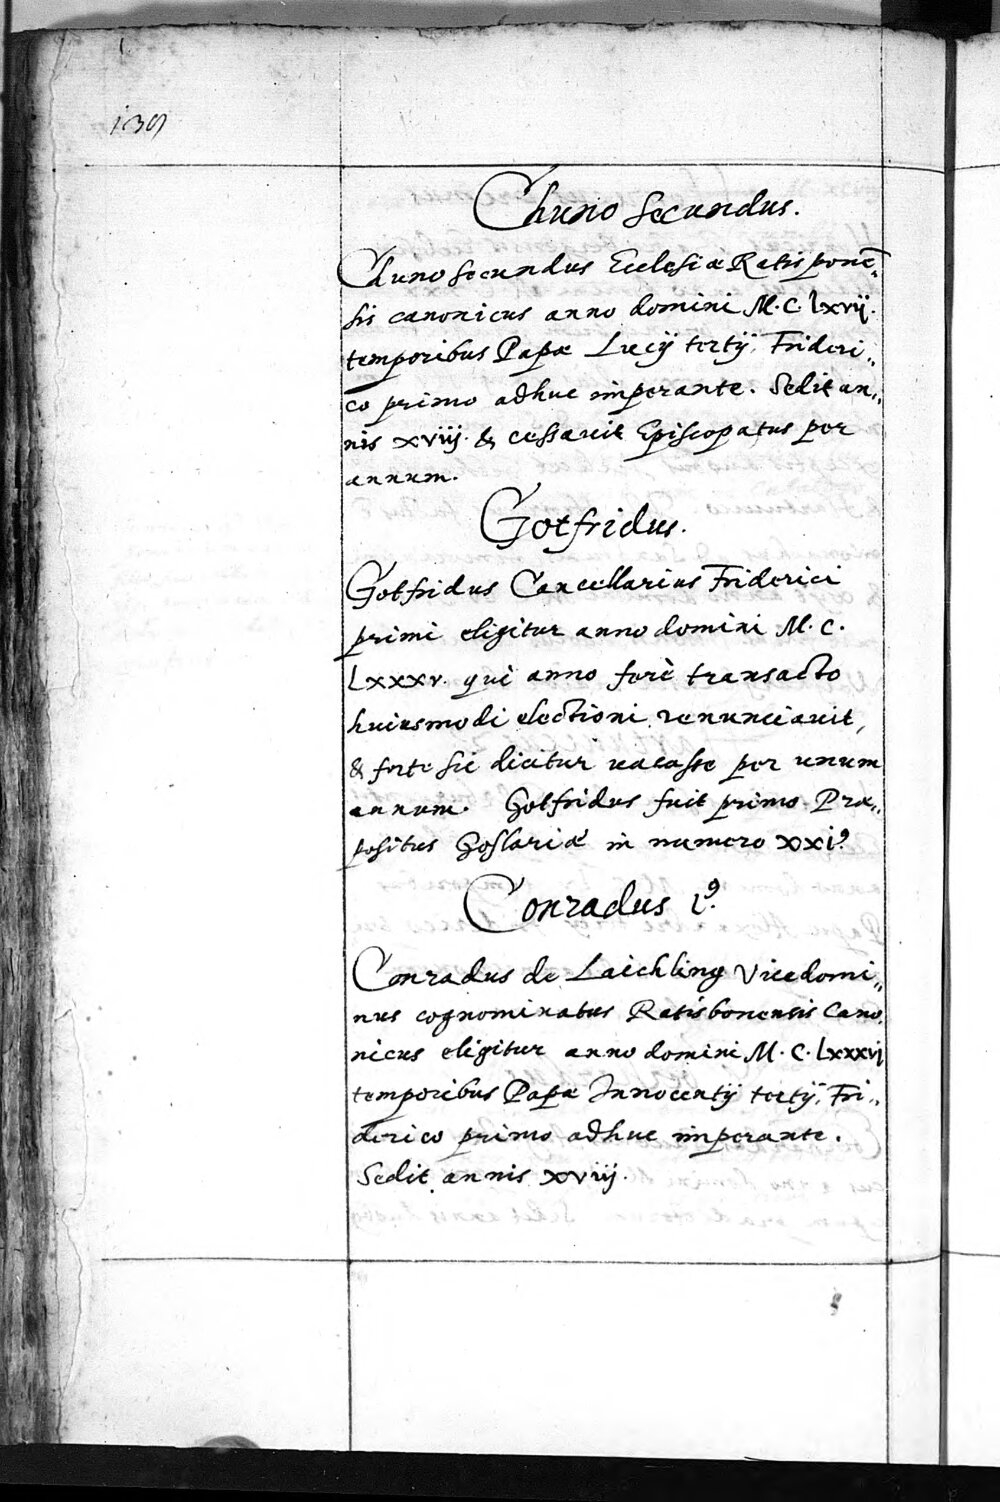 139
Chuno secundus.
Chuno secundus Ecclesiæ Ratisponē„
sis canonicus anno domini M. C. lxvij.
temporibus Papæ Lucij tertij, Frideri„
co primo adhuc imperante. Sedit an„
nis xviij. & cessavit Episcopatus per
annum.
Gotfridus.
Gotfridus Cancellarius Friderici
primi eligitur anno domini M. C.
Lxxxv. qui anno ferè transacto
huiusmodi electioni renunciauit,
& forte sic dicitur uacasse per unum
annum. Gotfridus fuit primo Præ„
positus Goslariæ in numero xxi⁹.
Conradus i⁹.
Conradus de Laichling Vicedomi„
nus cognominatus Ratisbonensis Cano„
nicus eligitur anno domini M. C. Lxxxvj
temporibus Papæ Innocentij tertij, Fri„
derico primo adhuc imperante.
Sedit annis xviij.